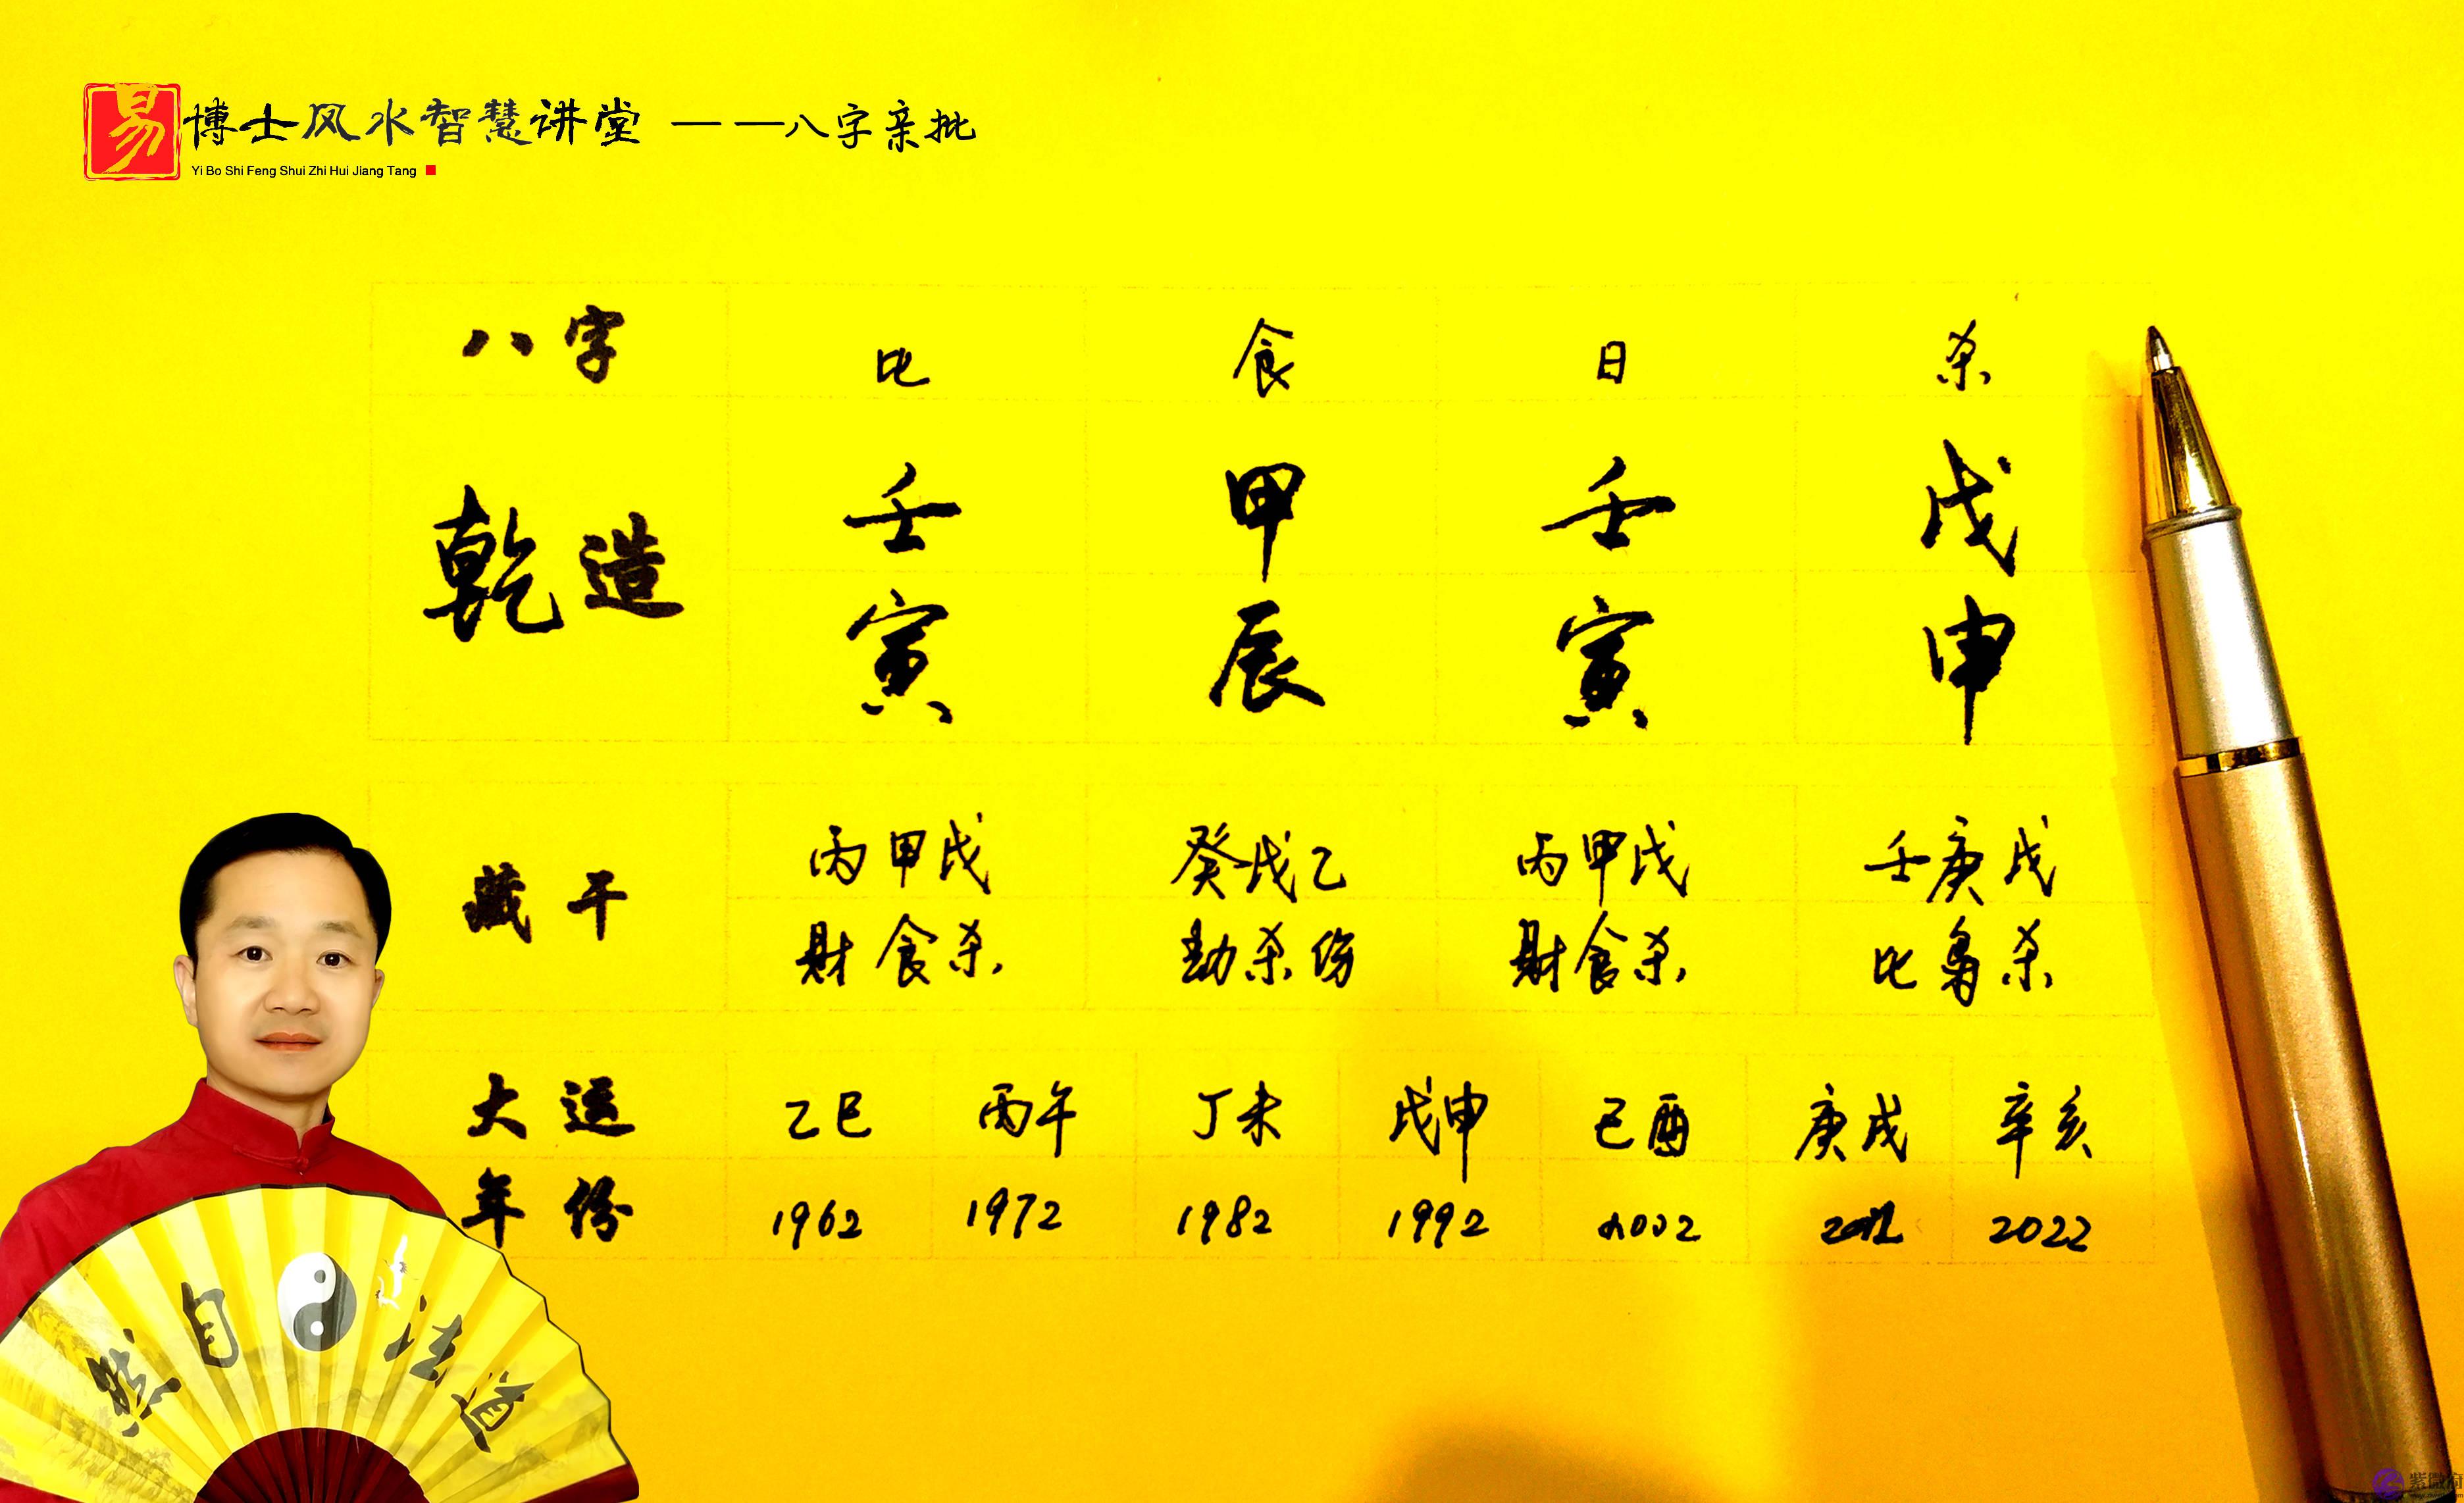 易博士风水智慧讲堂 ——八字亲批
Yi Bo Shi Feng Shui Zhi Hui Jiang Tang
八字 比 食 日 杀
乾造 壬 甲 壬 戊
寅 辰 寅 申
藏干 丙甲戊 癸戊乙 丙甲戊 壬庚戊
财食杀 劫杀伤 财食杀 比枭杀
大运 乙巳 丙午 丁未 戊申 己酉 庚戌 辛亥
年份 1962 1972 1982 1992 2002 2012 2022
道法自然
紫微